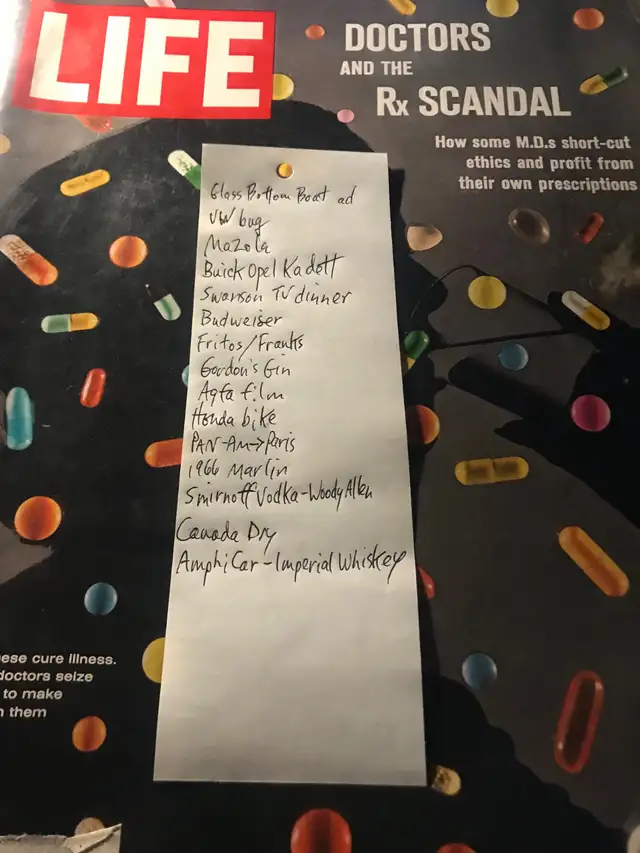 LIFE
DOCTORS
AND THE
Rx SCANDAL
How some M.D.s short-cut
ethics and profit from
their own prescriptions
Glass Bottom Boat ad
VW bug
Mazola
Buick Opel Kadett
Swanson TV dinner
Budweiser
Fritos/Franks
Gordon's Gin
Agfa film
Honda bike
PAN-Am→Paris
1966 Marlin
Smirnoff Vodka-Woody Allen
Canada Dry
AmphiCar-Imperial Whiskey
ese cure illness.
doctors seize
to make
them